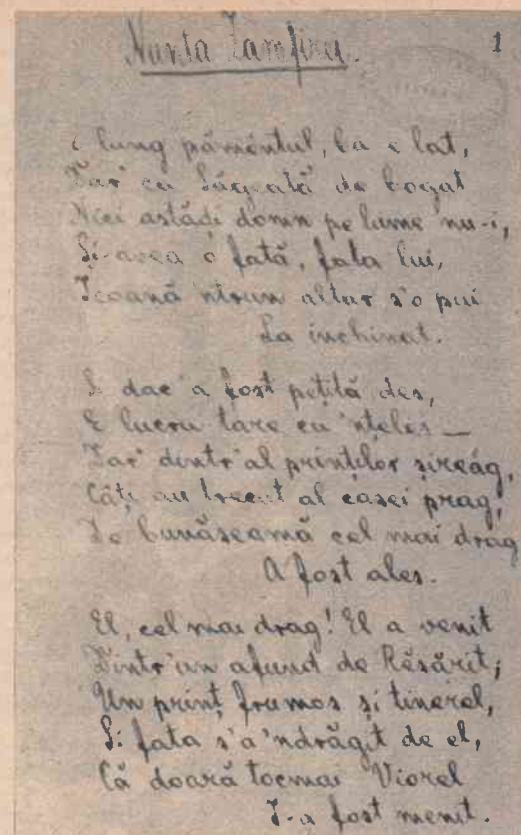 Nunta Zamfirei.
1
E lung pămêntul, ba e lat,
Dar' ca Săgeată de bogat
Nici astăḑi domn pe lume nu-i,
Și-avea o fată, fata lui,
Icoană 'ntrun altar s'o pui
La inchinat.
Și dac'a fost pețită des,
E lucru tare cu 'nțeles —
Dar' dintr'al prinților șireág,
Câți au trecut al casei prag,
De bunăseamă cel mai drag
A fost ales.
El, cel mai drag! El a venit
Dintr'un afund de Rĕsărit,
Un prinț frumos și tinerel,
Și fata s'a'ndrăgit de el,
Că doară tocmai Viorel
I-a fost menit.